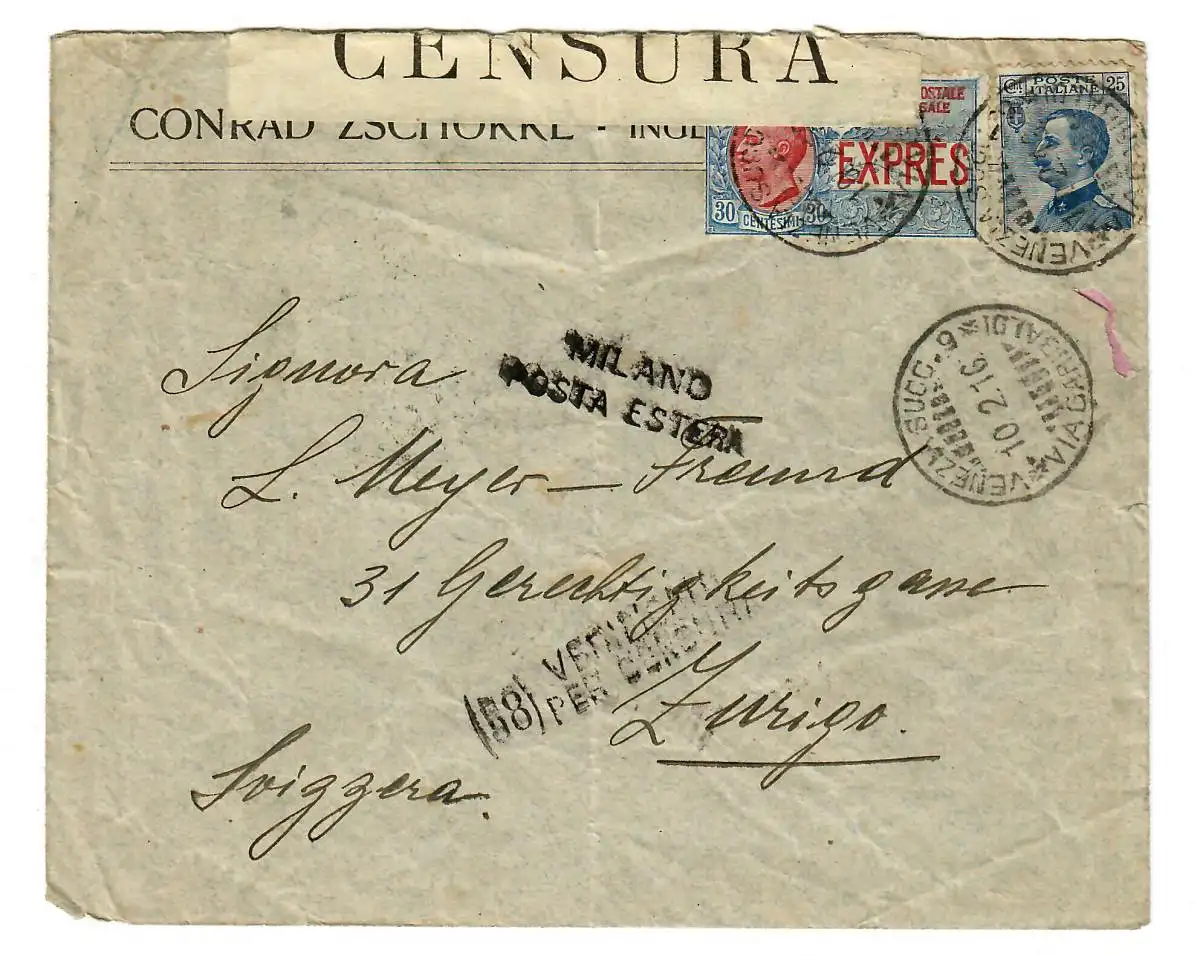 CENSURA
CONRAD ZSCHOKKE - INGE
OSTALE
SALE
EXPRES
30 CENTESIMI 30
POSTE
ITALIANE 25
MILANO
POSTA ESTERA
VENEZIA SUCC. 6 VIA GARIBALDI
10.2.16
Signora
L. Meyer - Freund
31 Gerechtigkeitsgasse
(58) VERIFICATO
PER CENSURA
Zurigo.
Svizzera.